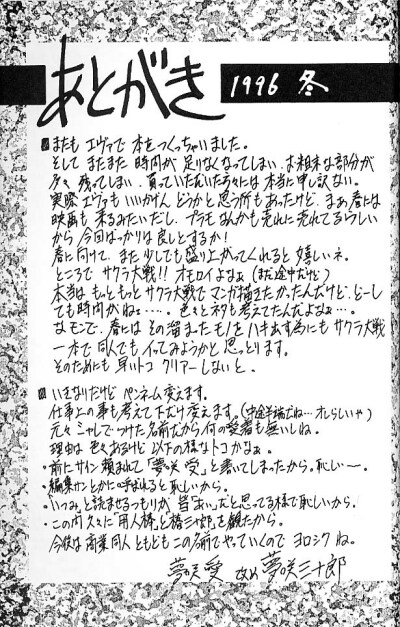 あとがき 1996 冬
またも エヴァで 本をつくっちゃいました。
そして またまた 時間が 足りなくなってしまい、お粗末な部分が
多々 残ってしまい、買っていただいた方々には 本当に申し訳ない。
実際 エヴァも いいかげん どうかと思う所もあったけど、まあ 春には
映画も 来るみたいだし、プラモなんかも売れに売れてるらしい
から 今回ばっかりは良しとするか!
春に向けて、また 少しでも 盛り上がってくれると 嬉しいネ。
ところで サクラ大戦!! オモロイよなぁ (まだ途中だけど)
本当は もっともっと サクラ大戦で マンガ描きたかったんだけど、どーし
ても時間がねぇ…‥。色々とネタも考えてたんだよなぁ…。
なモンで、春には その溜まったモノを ハキ出す為にも サクラ大戦
一本で 同人でも イってみようかと 思っとります。
そのためにも 早いトコ クリアーしないと‥
いきなりだけど ペンネム変えます。
仕事上の事も考えて下だけ変えます。(中途半端だね…オレらしいや)
元々 シャレでつけた名前だから 何の愛着も無いしね。
理由は 色々あるけど 以下の様なトコかなぁ。
・前にサイン 頼まれて「夢咲 愛」と書いてしまったから。恥しい〜。
・編集サンとかに呼ばれると恥しいから。
・「いつみ」と読ませるつもりが 皆「あい」だと思ってる様で恥しいから。
・この間久々に「用人棒」と「椿三十郎」を観たから。
今後は 商業 同人ともどもこの名前でやっていくので ヨロシク ね。
夢咲 愛 改め 夢咲三十郎